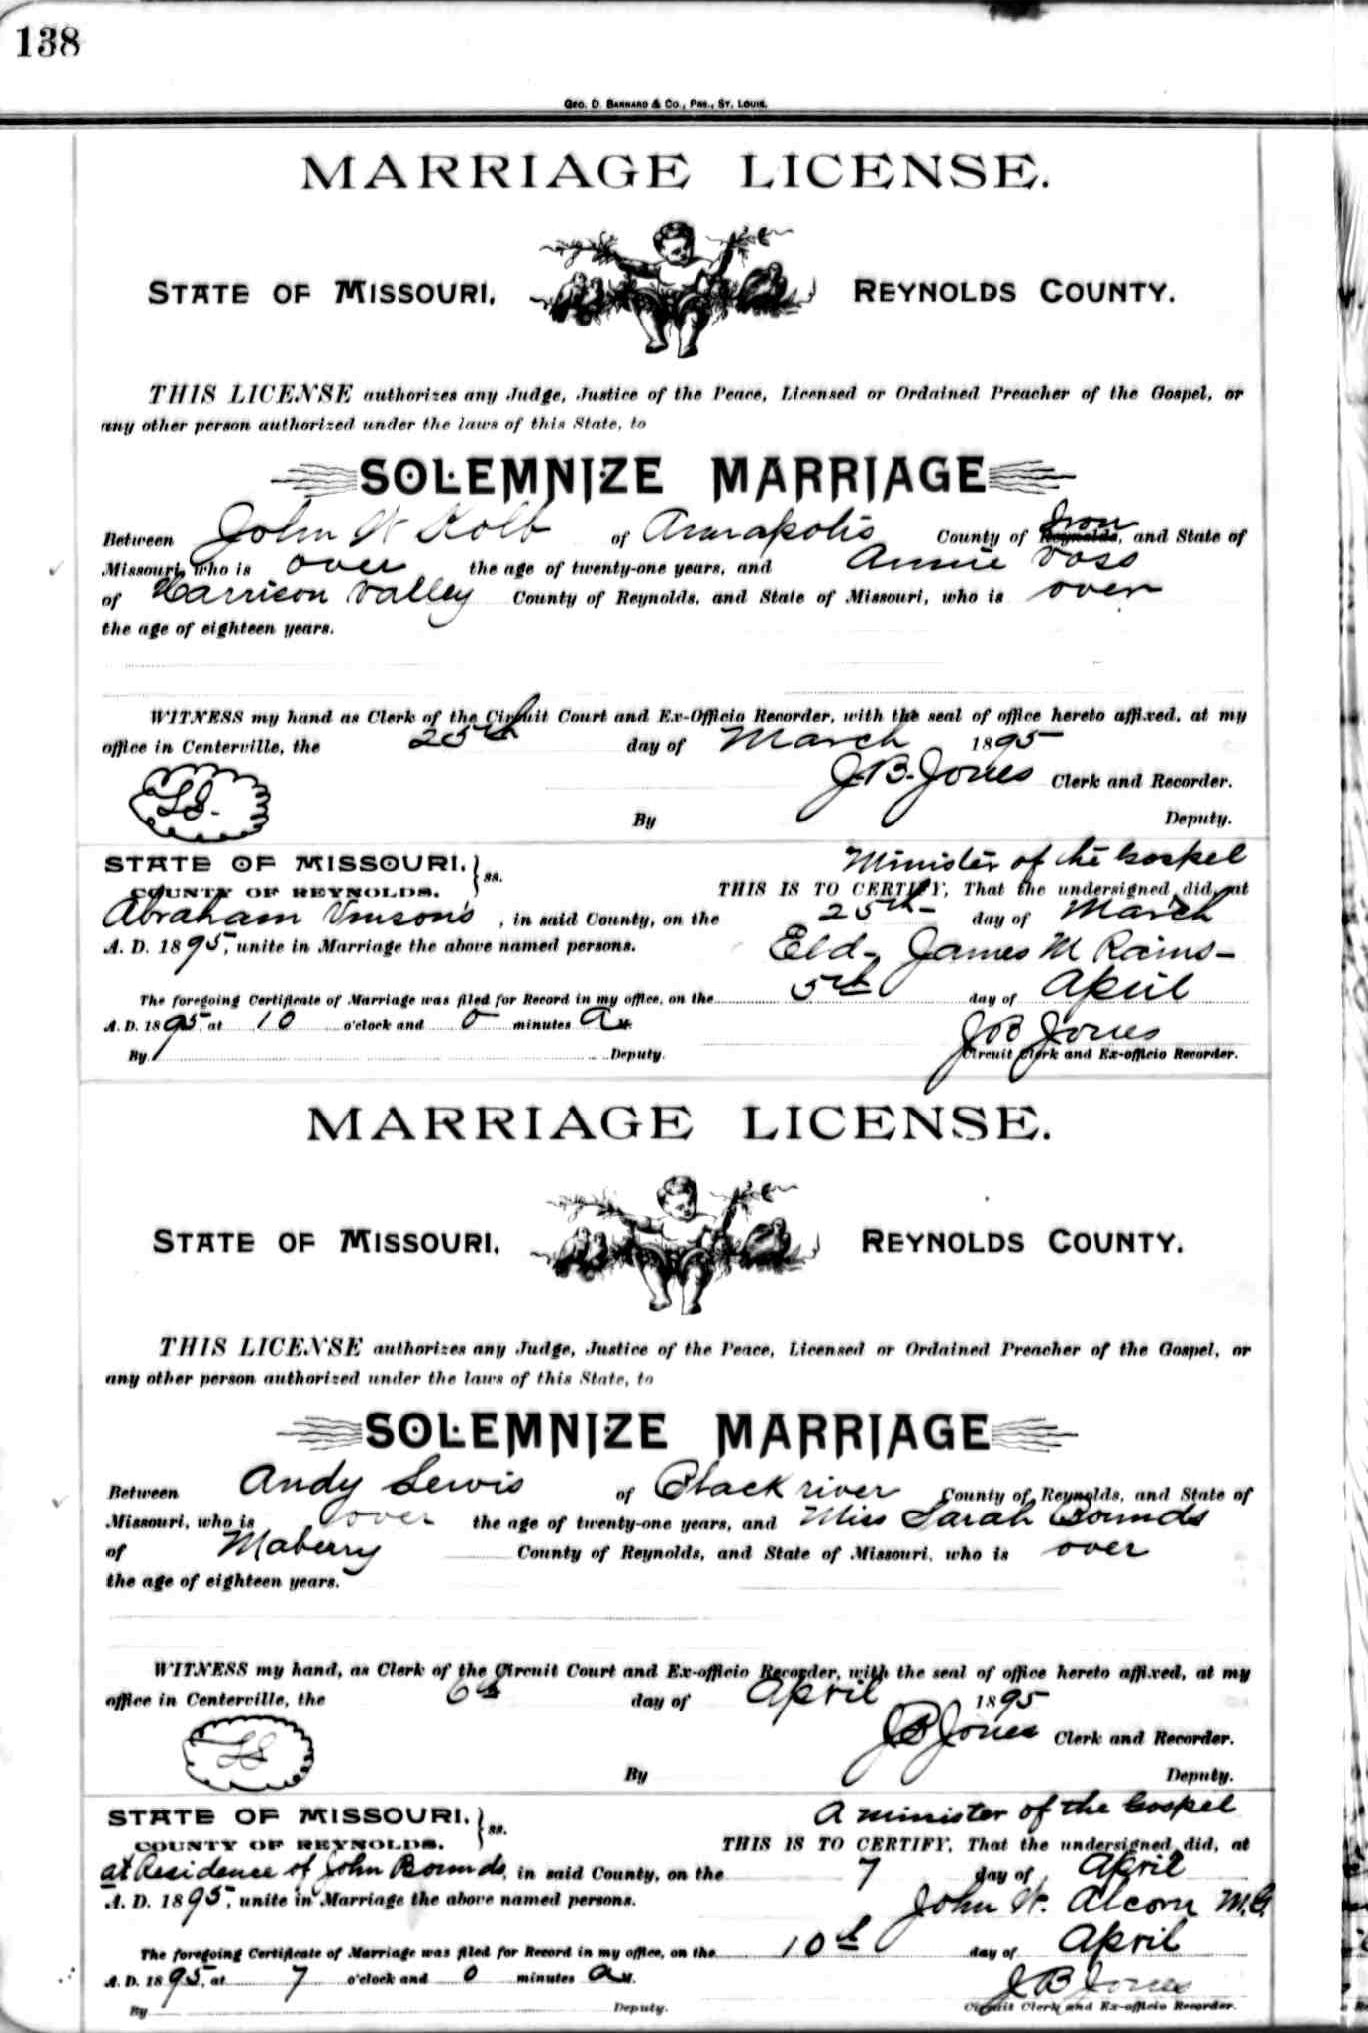 138
GEO. D. BARNARD & CO., PRS., ST. LOUIS.
MARRIAGE LICENSE.
STATE OF MISSOURI, REYNOLDS COUNTY.
THIS LICENSE authorizes any Judge, Justice of the Peace, Licensed or Ordained Preacher of the Gospel, or
any other person authorized under the laws of this State, to
SOLEMNIZE MARRIAGE
Between John W Kolb of Annapolis County of Iron Reynolds, and State of
Missouri, who is over the age of twenty-one years, and Annie Voss
of Harrison Valley County of Reynolds, and State of Missouri, who is over
the age of eighteen years.
WITNESS my hand as Clerk of the Circuit Court and Ex-Officio Recorder, with the seal of office hereto affixed, at my
office in Centerville, the 25th day of March 1895
J.B. Jones Clerk and Recorder.
L.S.
By Deputy.
STATE OF MISSOURI, } ss. Minister of the Gospel
COUNTY OF REYNOLDS. THIS IS TO CERTIFY, That the undersigned did, at
Abraham Vinson's, in said County, on the 25th day of March
A. D. 1895, unite in Marriage the above named persons. Eld. James M Rains
The foregoing Certificate of Marriage was filed for Record in my office, on the 5th day of April
A. D. 1895, at 10 o'clock and 0 minutes A M. J B Jones
By Deputy. Circuit Clerk and Ex-officio Recorder.
MARRIAGE LICENSE.
STATE OF MISSOURI, REYNOLDS COUNTY.
THIS LICENSE authorizes any Judge, Justice of the Peace, Licensed or Ordained Preacher of the Gospel, or
any other person authorized under the laws of this State, to
SOLEMNIZE MARRIAGE
Between Andy Lewis of Black river County of Reynolds, and State of
Missouri, who is over the age of twenty-one years, and Miss Sarah Bounds
of Maberry County of Reynolds, and State of Missouri, who is over
the age of eighteen years.
WITNESS my hand, as Clerk of the Circuit Court and Ex-officio Recorder, with the seal of office hereto affixed, at my
office in Centerville, the 6th day of April 1895
J B Jones Clerk and Recorder.
LS
By Deputy.
STATE OF MISSOURI, } ss. A minister of the Gospel
COUNTY OF REYNOLDS. THIS IS TO CERTIFY, That the undersigned did, at
at Residence of John Bounds, in said County, on the 7 day of April
A. D. 1895, unite in Marriage the above named persons. John W. Alcorn M.G
The foregoing Certificate of Marriage was filed for Record in my office, on the 10th day of April
A. D. 1895, at 7 o'clock and 0 minutes A M. J B Jones
By Deputy. Circuit Clerk and Ex-officio Recorder.